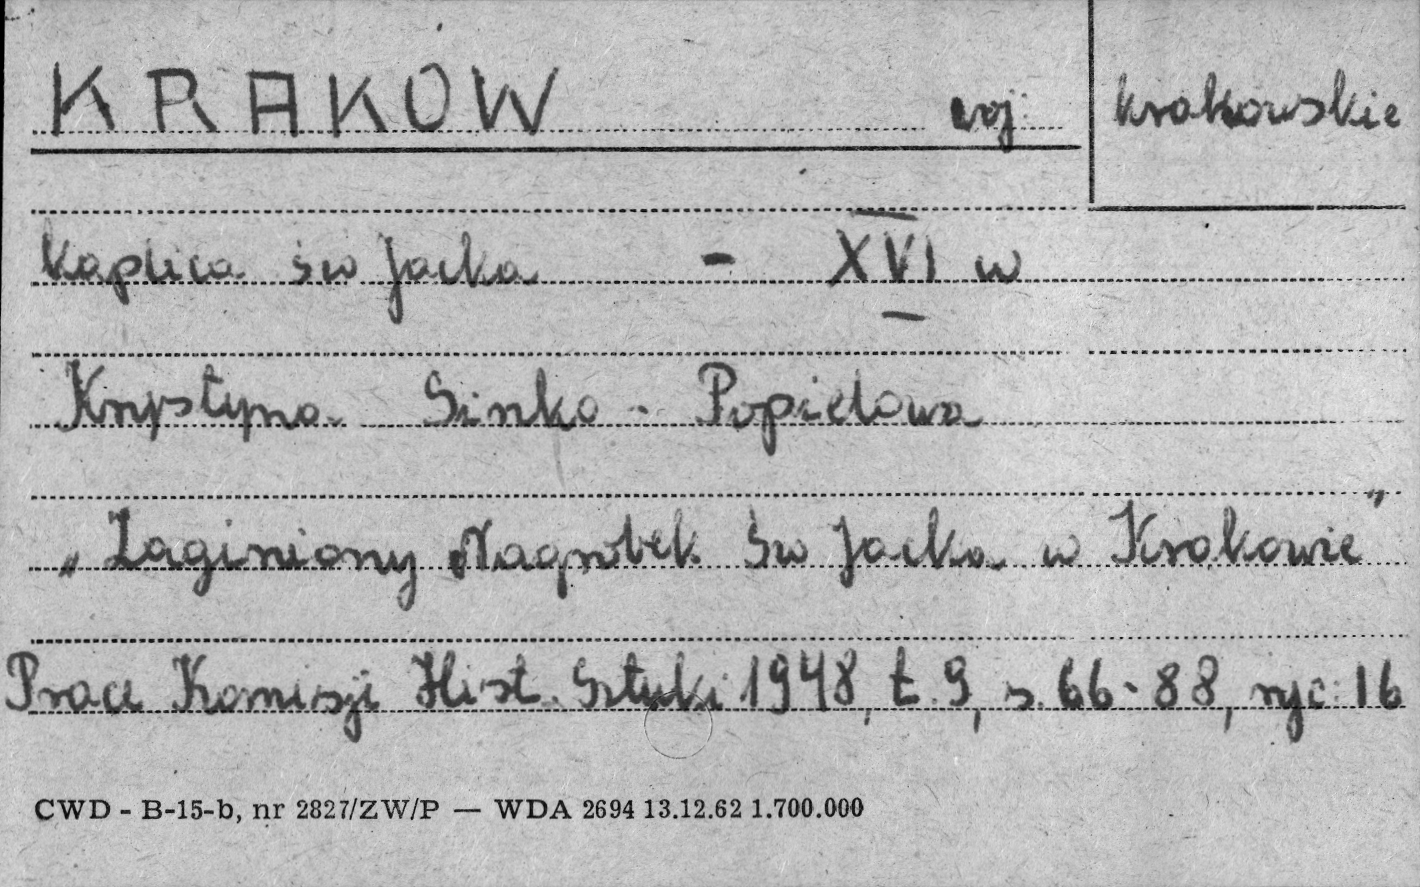 KRAKOW woj. krakowskie
Kaplica św Jacka - XVI w
Krystyna Sinko - Popielowa
„Zaginiony Nagrobek Św Jacka w Krakowie"
Prace Komisji Hist. Sztuki 1948, t. 9, s. 66-88, ryc. 16
CWD - B-15-b, nr 2827/ZW/P — WDA 2694 13.12.62 1.700.000